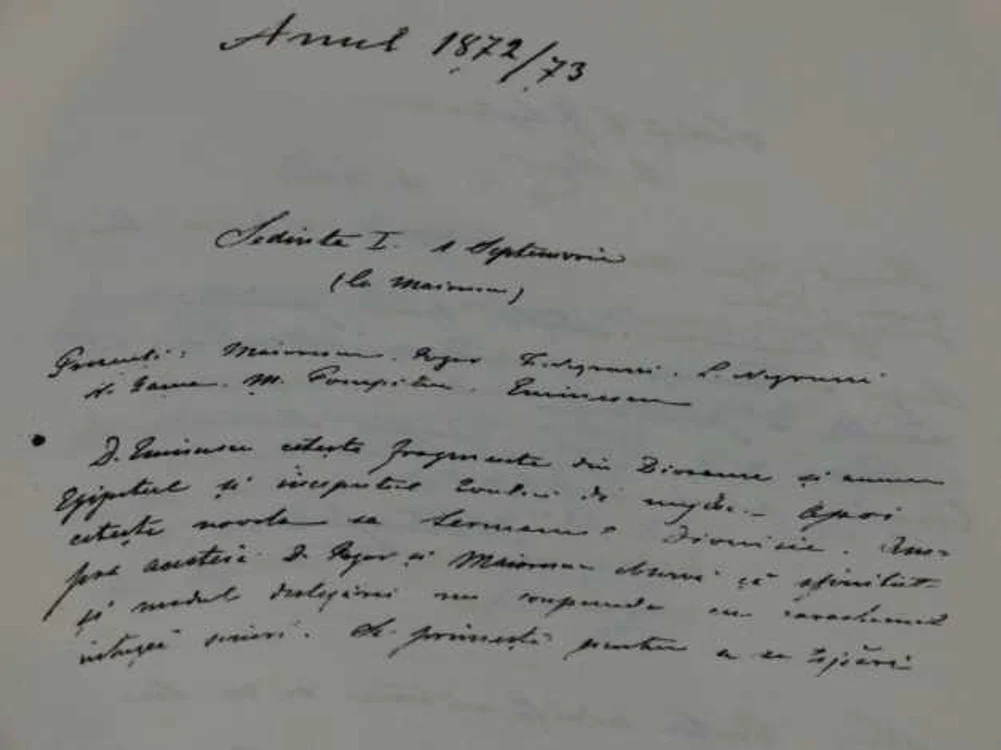 Anul 1872/73
Sedinta I. 1 Septemvrie
(la Maiorescu)
Presenti: Maiorescu. Pogor T. Negruzzi. L. Negruzzi
M. Pompiliu. Eminescu
D. Eminescu citeste fragmente din Diorame și anume
Egipetul și inceputul de mijloc. Apoi
citește novela sa Sermanul Dionisie. Asu-
pra acesteia D. Pogor și Maiorescu observă că sfirsitul
și modul deslegărei nu corespunde cu caracterul
intregei scrieri. Se primește pentru a se tipări